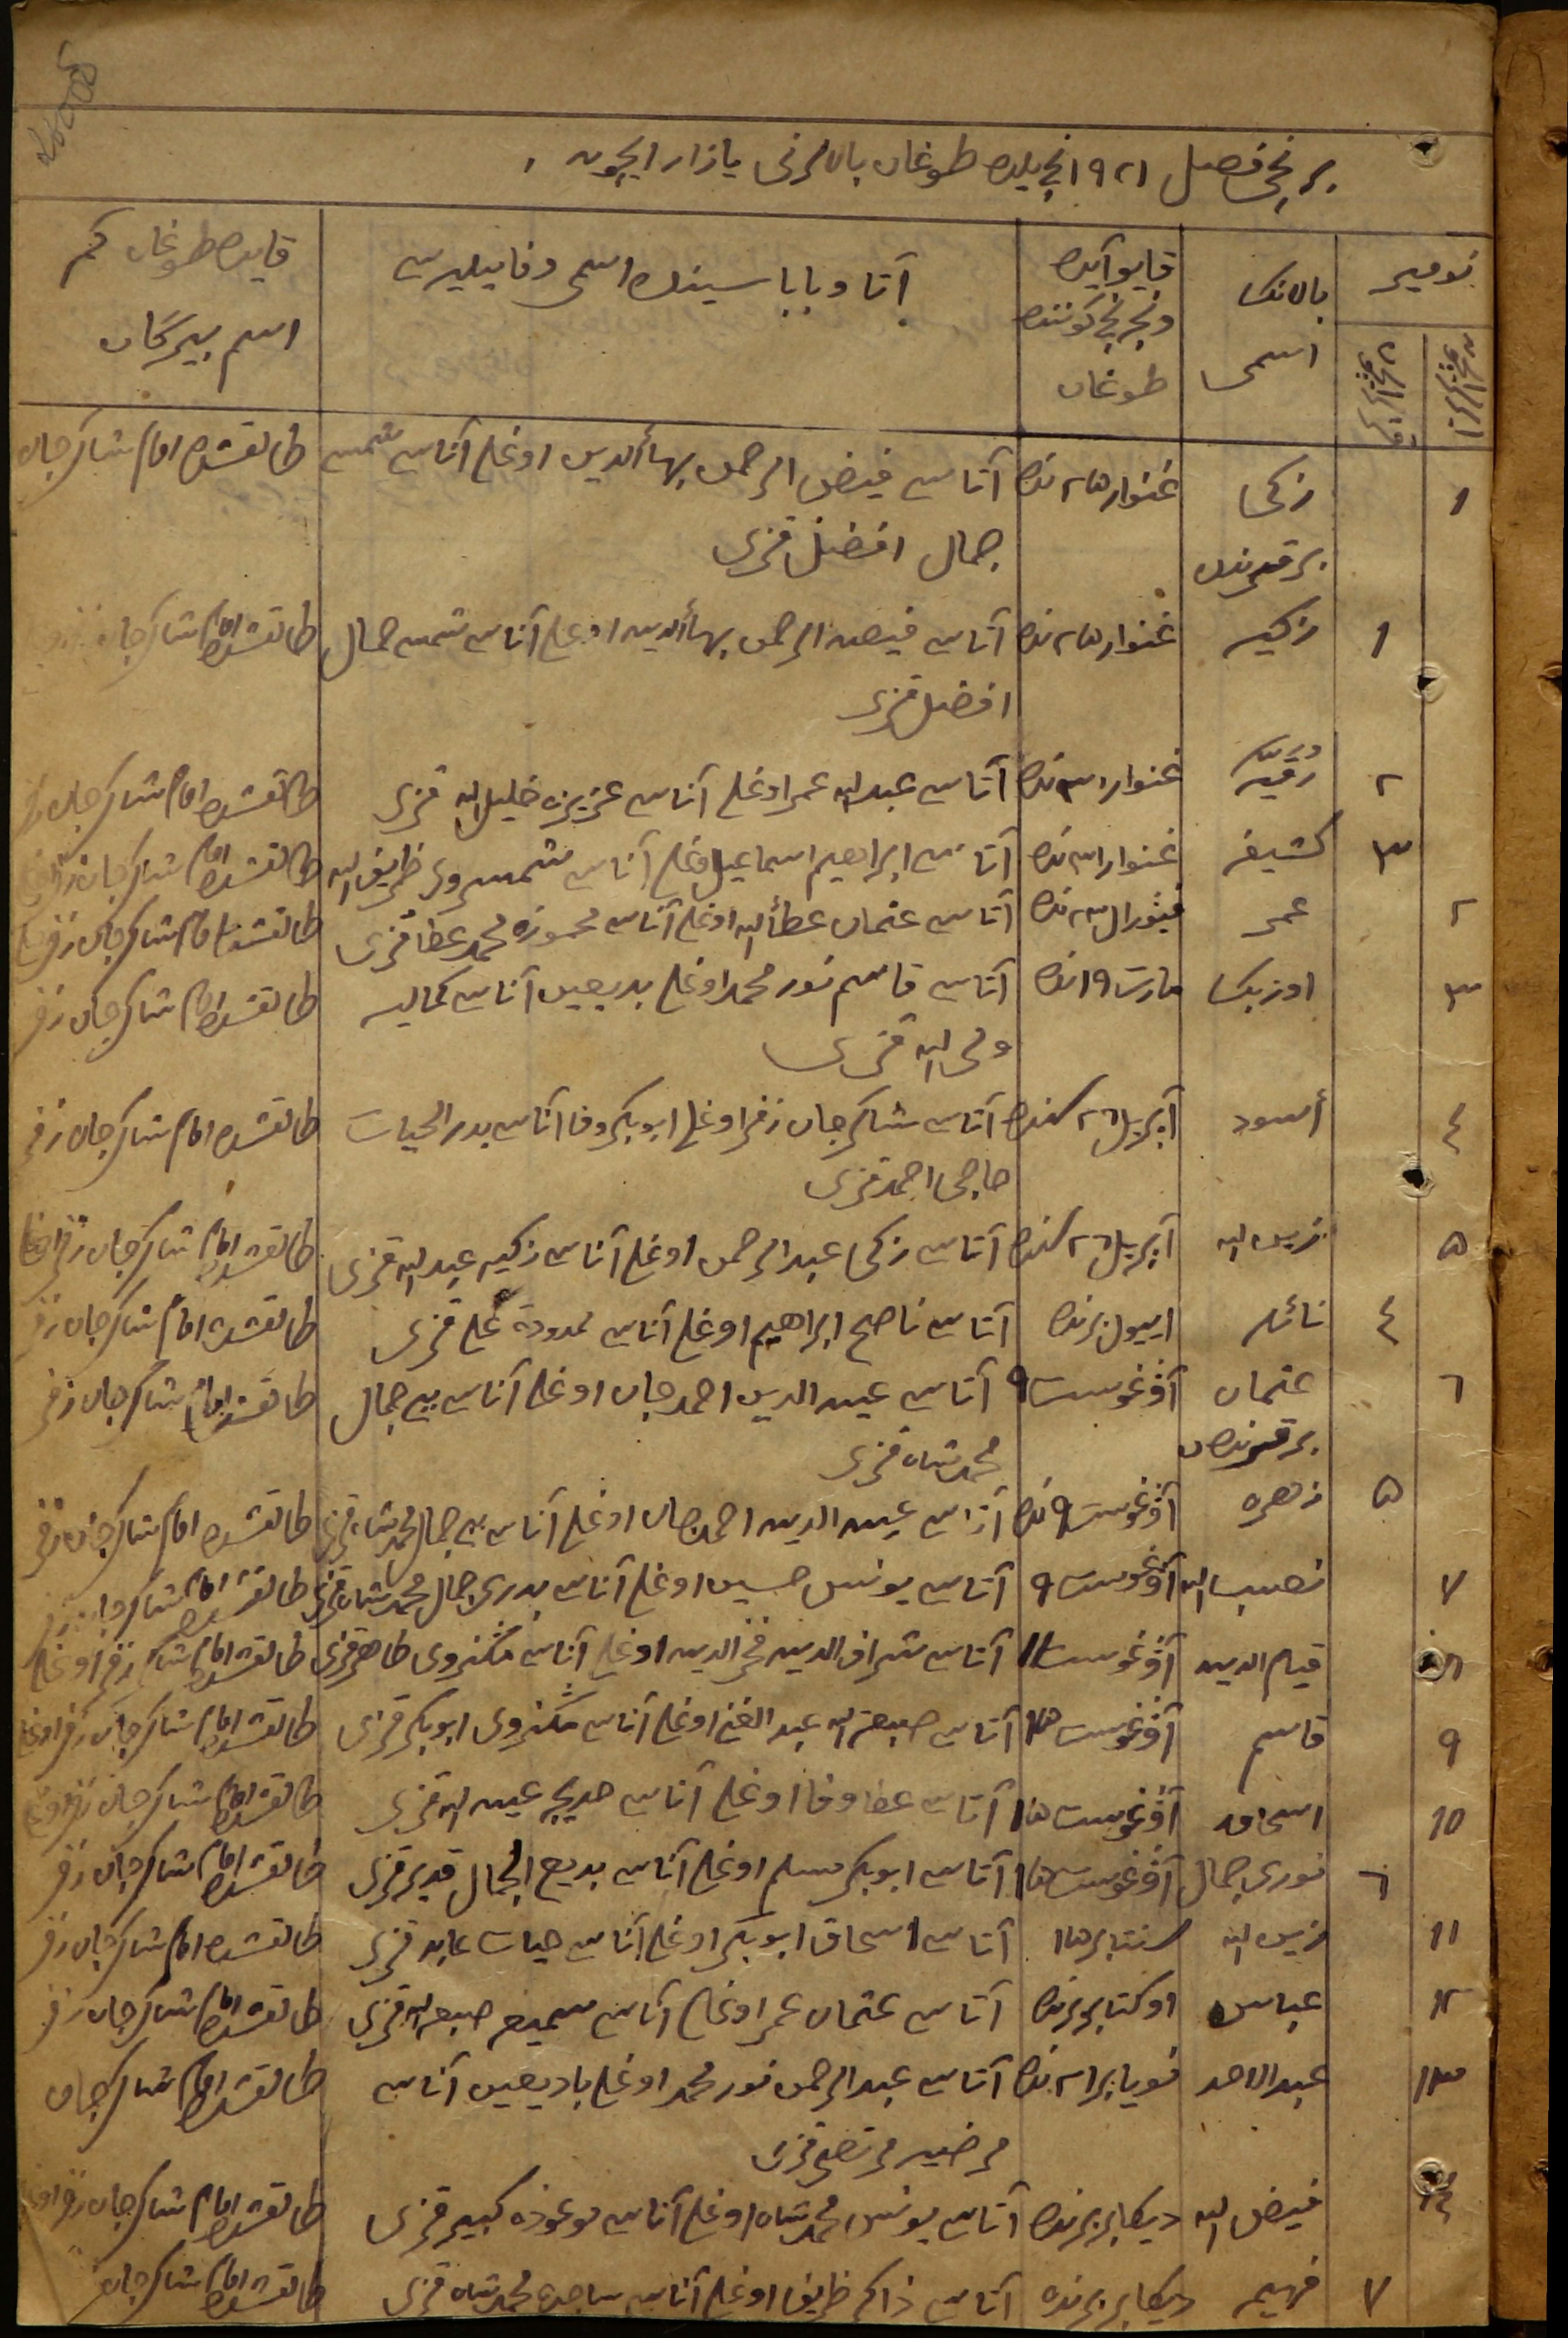 برنچی فصل ۱۹۲۱ نچی یلده طوغان بالالرنی یازار ایچون
نومیر
بالانڭ اسمی
قایو آیده ونچی کوننده طوغان
آتا و بابا سینڭ اسمی و فامیلیەسی
قایده طوغان کم اسم بیرگان
۱ زکی غنوار ۲۵ نده آتاسی فیض الرحمن بهاألدین اوغلی آناسی شمسی طالقشده امام شاکرجان
برقورندن جمال افضل قزی
۱ زکیه غنوار ۲۵ نده آتاسی فیض الرحمن بهاألدین اوغلی آناسی شمسی جمال طالقشده امام شاکرجان
افضل قزی
۲ رقیه غنوار ۳۱ نده آتاسی عبد الله عمر اوغلی آناسی عزیزه خلیل الله قزی طالقشده امام شاکرجان
۳ کشیفه غنوار ۳۱ نده آتاسی ابراهیم اسماعیل اوغلی آناسی شمسروی ظریف الله طالقشده امام شاکرجان
۲ عمر فیورال ۲۳ نده آتاسی عثمان عطأالله اوغلی آناسی محموزه محمد عطا قزی طالقشده امام شاکرجان زفر
۳ اوزبک مارت ۱۹ نده آتاسی قاسم نور محمد اوغلی بدیعین آناسی کمالیه طالقشده امام شاکرجان زفر
ولی الله قزی
٤ أسود آپریل ۲٦ سنده آتاسی شاکرجان زفر اوغلی ابوبکروفا آناسی بدر الحیات طالقشده امام شاکرجان زفر
حاجی احمد قزی
۵ زین الله آپریل ۲٦ سنده آتاسی زکی عبد الرحمن اوغلی آناسی زکیه عبد الله قزی طالقشده امام شاکرجان زفر اوغلی
٤ نائله اییول برنده آتاسی ناصح ابراهیم اوغلی آناسی ممدودة علی قزی طالقشده امام شاکرجان زفر
٦ عثمان آوغوست ۹ آتاسی عین الدین احمدجان اوغلی آناسی بی جمال طالقشده امام شاکرجان زفر
برقورنده محمدشاه قزی
۵ زهره آوغوست ۹ نده آتاسی عین الدین احمدجان اوغلی آناسی بی جمال محمدشاه قزی طالقشده امام شاکرجان زفر
۷ نصیب الله آوغوست ۹ آتاسی یونس حسین اوغلی آناسی بدری جمال محمدشاه قزی طالقشده امام شاکرجان
۸ قیام الدین آوغوست ۱۱ آتاسی شراف الدین فخر الدین اوغلی آناسی مڭزروی طاهر قزی طالقشده امام شاکر زفر اوغلی
۹ قاسم آوغوست ۱۵ آتاسی صبغة الله عبد الغنی اوغلی آناسی مڭزروی ابوبکر قزی طالقشده امام شاکرجان زفر اوغلی
۱۰ اسحاق آوغوست ۱۵ آتاسی عطا وفا اوغلی آناسی خدیجه عین الله قزی طالقشده امام شاکرجان زفر اوغلی
٦ نوری جمال آوغوست ۱۵ آتاسی ابوبکر مسلم اوغلی آناسی بدیع الجمال قدیر قزی طالقشده امام شاکرجان زفر
۱۱ زین الله سنتابر ۱۵ آتاسی اسحاق ابوبکر اوغلی آناسی حیات عابد قزی طالقشده امام شاکرجان زفر
۱۲ عباس اوکتابر برنده آتاسی عثمان عمر اوغلی آناسی سمیعه صبغة الله قزی طالقشده امام شاکرجان زفر
۱۳ عبد الاحد نویابر ۲۱ نده آتاسی عبد الرحمن نور محمد اوغلی بادیعین آناسی طالقشده امام شاکرجان
مرضیه مرتضی قزی
۱٤ فیض الله دیکابر برنده آتاسی یونس محمدشاه اوغلی آناسی موعوذه کبیر قزی طالقشده امام شاکرجان زفر اوغلی
۷ فهیمه دیکابر برنده آتاسی ذاکر ظریف اوغلی آناسی ساجده محمدشاه قزی طالقشده امام شاکرجان